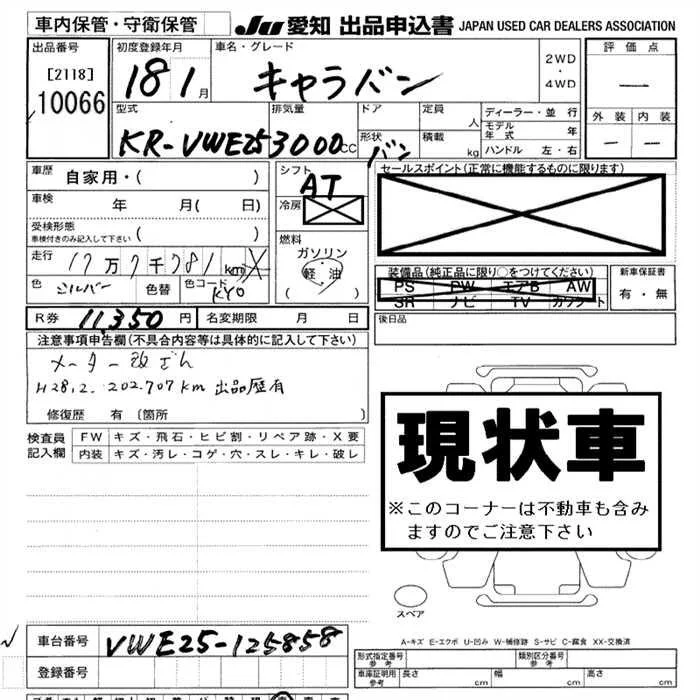 車内保管・守衛保管
JU 愛知 出品申込書 JAPAN USED CAR DEALERS ASSOCIATION
出品番号
[2118]
10066
初度登録年月
18 1月
車名・グレード
キャラバン
2WD
・
4WD
評価点
—
外装 内装
— —
型式
KR-VWE25
排気量
3000cc
ドア
形状
バン
定員
人
積載
kg
ディーラー・並行
モデル年式 年
ハンドル 左・右
車歴 自家用・( )
車検 年 月( 日)
受検形態
車検付きのみ記入して下さい ( )
走行 17万7千781km X
色 シルバー 色替 色コード KY0
シフト
AT
冷房
燃料
ガソリン
軽油
( )
セールスポイント(正常に機能するものに限ります)
装備品(純正品に限り○をつけてください)
PS PW エアB AW
SR ナビ TV カワシート
新車保証書
有・無
R券 11,350円 名変期限 月 日
後日品
注意事項申告欄(不具合内容等は具体的に記入して下さい)
メーター改ざん
H28,2. 202.707km 出品歴有
修復歴 有〔箇所
検査員
記入欄
FW キズ・飛石・ヒビ割・リペア跡・X要
内装 キズ・汚レ・コゲ・穴・スレ・キレ・破レ
現状車
※このコーナーは不動車も含み
ますのでご注意下さい
スペア
A-キズ E-エクボ U-凹み W-補修跡 S-サビ C-腐食 XX-交換済
✓ 車台番号 VWE25-125858
登録番号
形式指定番号
参考
類別区分番号
参考
車庫証明用
参考
長さ cm 幅 cm 高さ cm